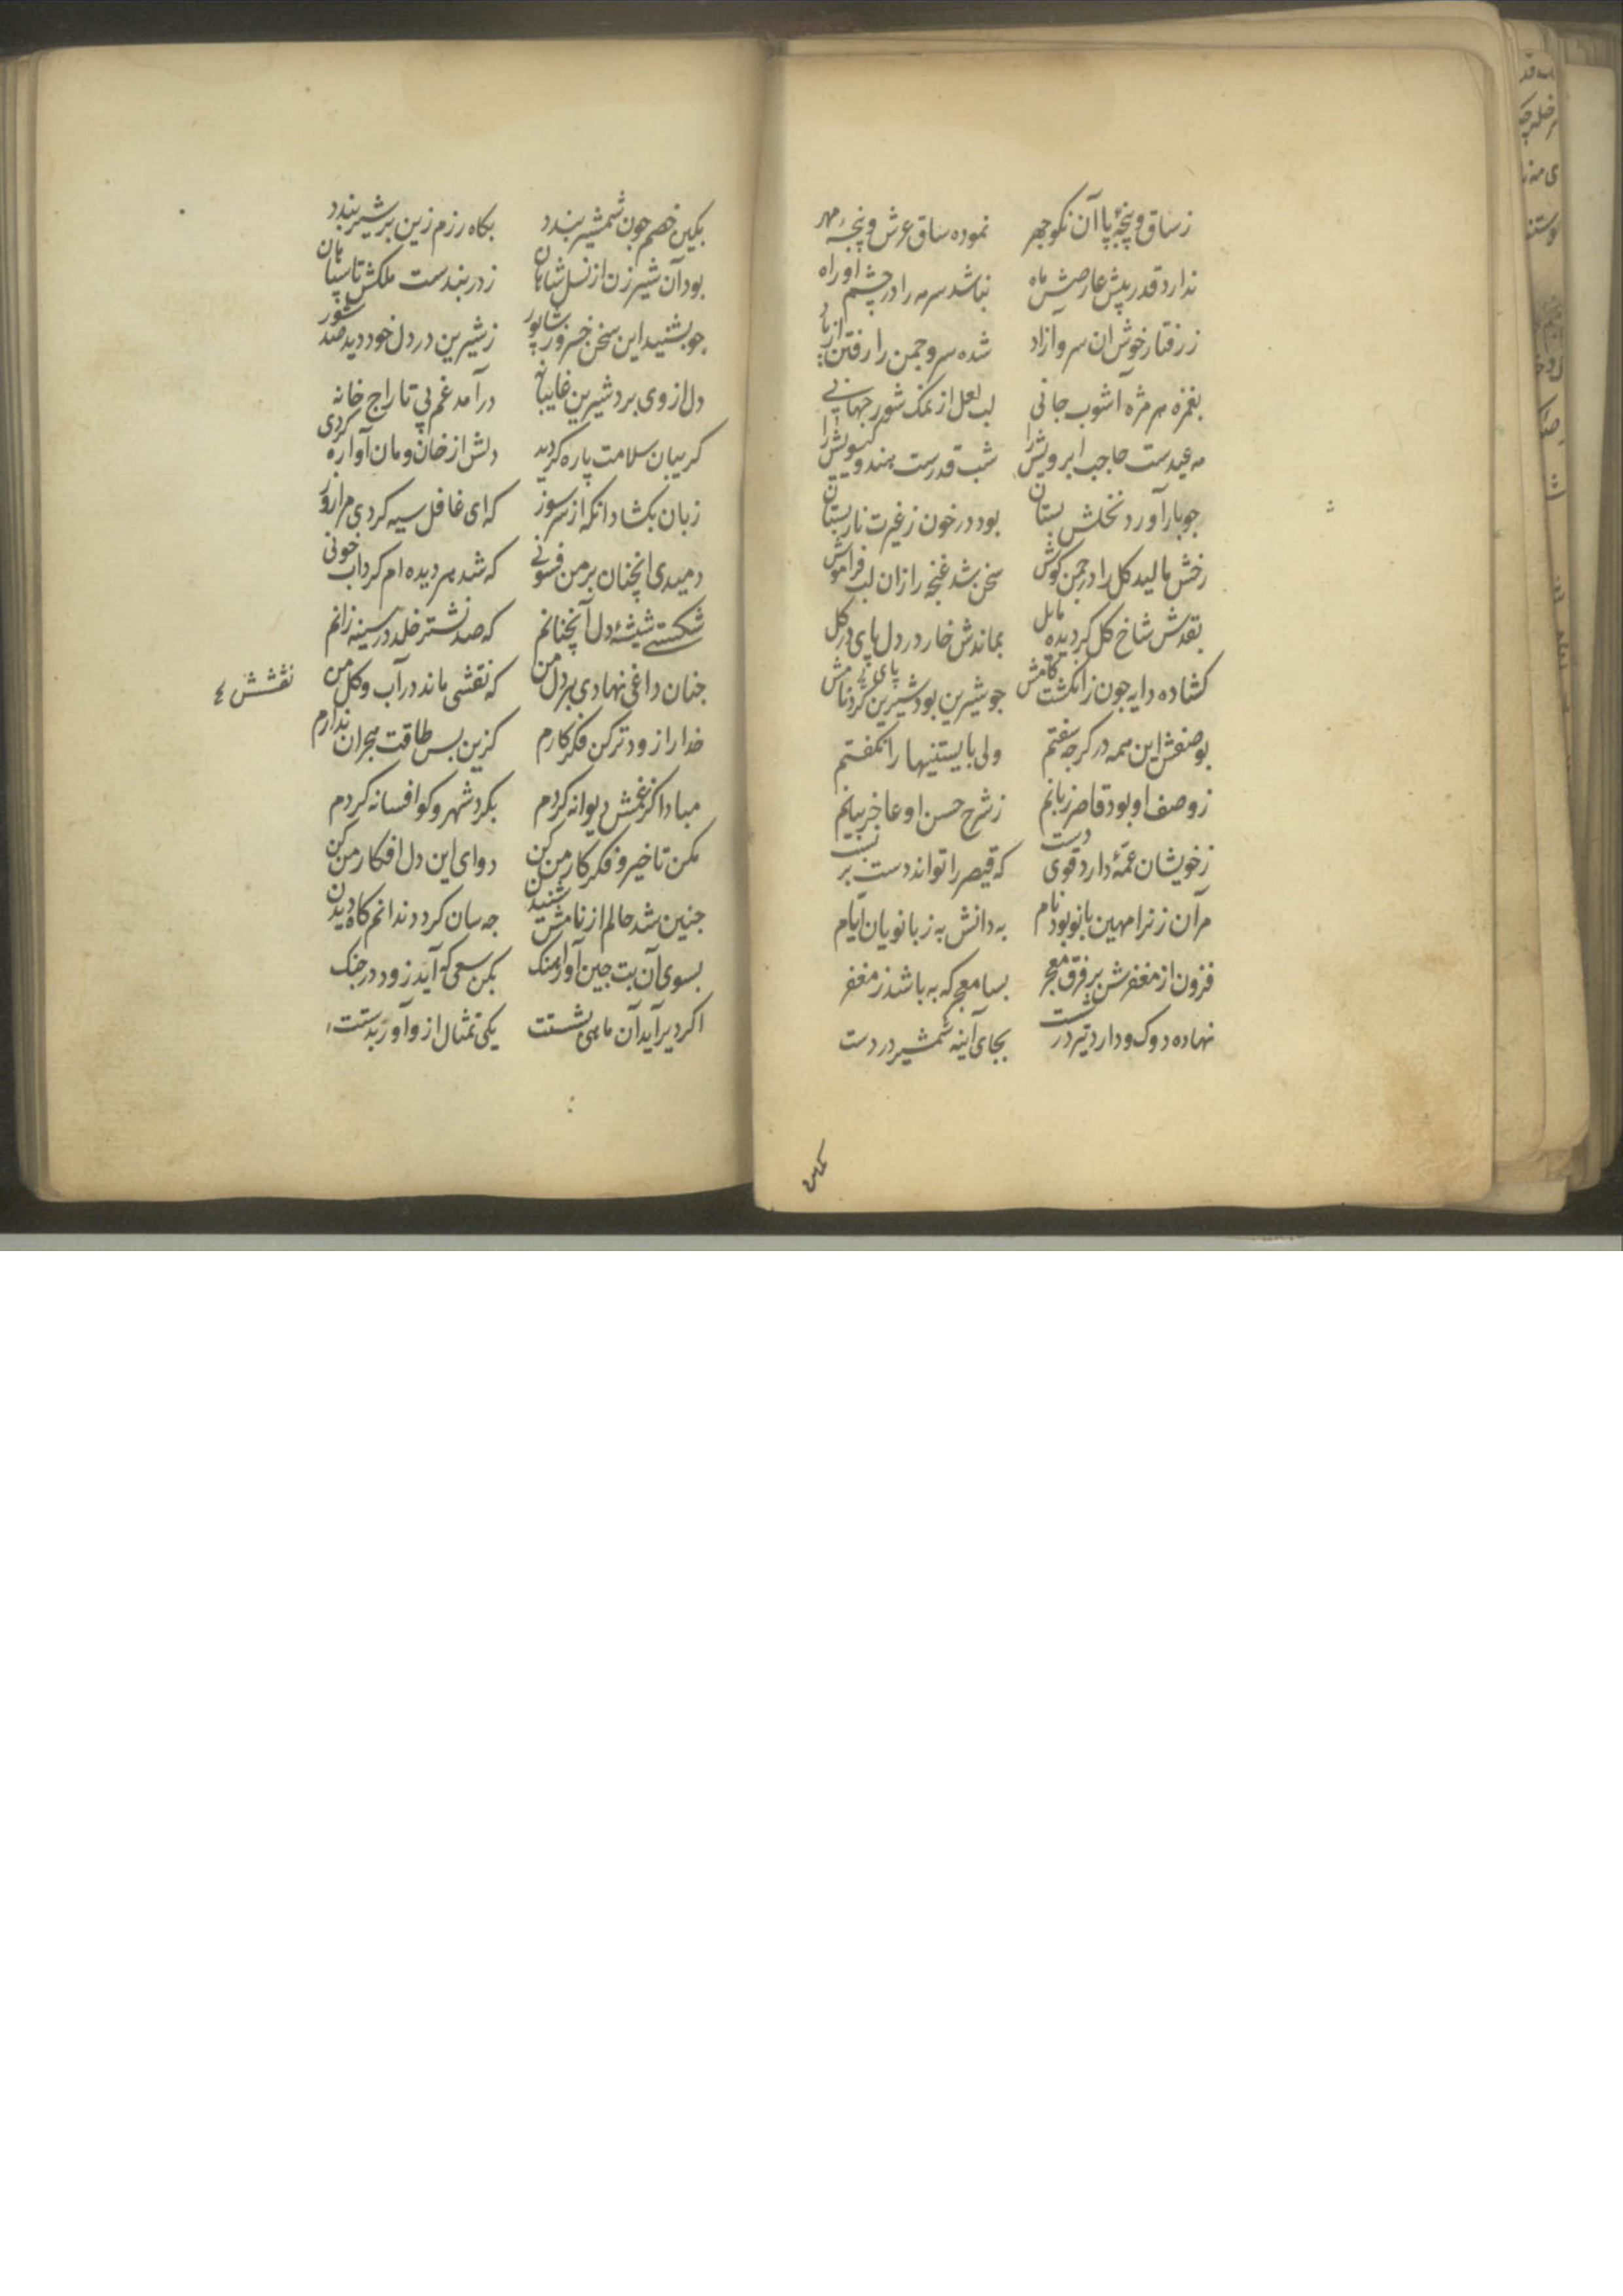 زساق و پنجهٔ پا آن نکوچهر نموده ساق عرش و پنجهٔ مهر
ندارد قدر پیش عارضش ماه نباشد سرمه را در چشم او راه
ز رفتار خوش ان سرو ازاد شده سرو چمن را رفتن از یاد
بغمزه هر مژه آشوب جانی لب لعل از نمک شور جهانی
مه عیدست حاجب ابرویش را شب قدرست هندو کیسویش را
جو بار آورد نخلش بستان بود در خون ز غیرت نار بستان
رخش مالید کل را در جمن کوش سخن شد غنجه را زان لب فراموش
بقدش شاخ کل کردیده مایل بماندش خار در دل پای در کل
کشاده دایه جون ز انکشت کامش جو شیرین بود شیرین کرد نامش
بوصفش این همه در کرجه سفتم ولی بایستنیها را نکفتم
ز وصف او بود قاصر زبانم ز شرح حسن او عاجز بیانم
ز خویشان عمّهٔ دارد قوی دست که قیصر را تواند دست بر بست
مر آن زنرا مهین بانو بود نام به دانش به ز بانویان ایّام
فزون از مغفرش بر فرق معجر بسا معجر که به باشد ز مغفر
نهاده دوک و دارد تیر در شست بجای آینه شمشیر در دست
بکین خصم جون شمشیر بندد بکاه رزم زین بر شیر بندد
بود آن شیر زن از نسل شاهان ز دربندست ملکش تا سپاهان
جو بشنید این سخن خسرو ز شاپور ز شیرین در دل خود دید صد شور
دل از وی برد شیرین غایبانه درآمد غم پی تاراج خانه
کریبان سلامت پاره کردید دلش از خان و مان آواره کردی
زبان بکشاد انکه از سر سوز که ای غافل سیه کردی مرا روز
دمیدی انچنان بر من فسونی که شد هر دیده ام کرداب خونی
شکستی شیشهٔ دل آنچنانم که صد نشتر خلد در سینه زانم
جنان داغی نهادی بر دل من که نقشی ماند در آب و کل من
نقشش
خدا را زودتر کن فکر کارم کزین بس طاقت هجران ندارم
مبادا کز غمش دیوانه کردم بکرد شهر و کو افسانه کردم
مکن تاخیر و فکر کار من کن دوای این دل افکار من کن
جنین شد حالم از نامش شنیدن جه سان کردد ندانم کاه دیدن
بسوی آن بت جین آور آهنک بکن سعی که آید زود در جنک
اکر دیر آید آن ماهی بشستت یکی تمثال ازو آور بدستت